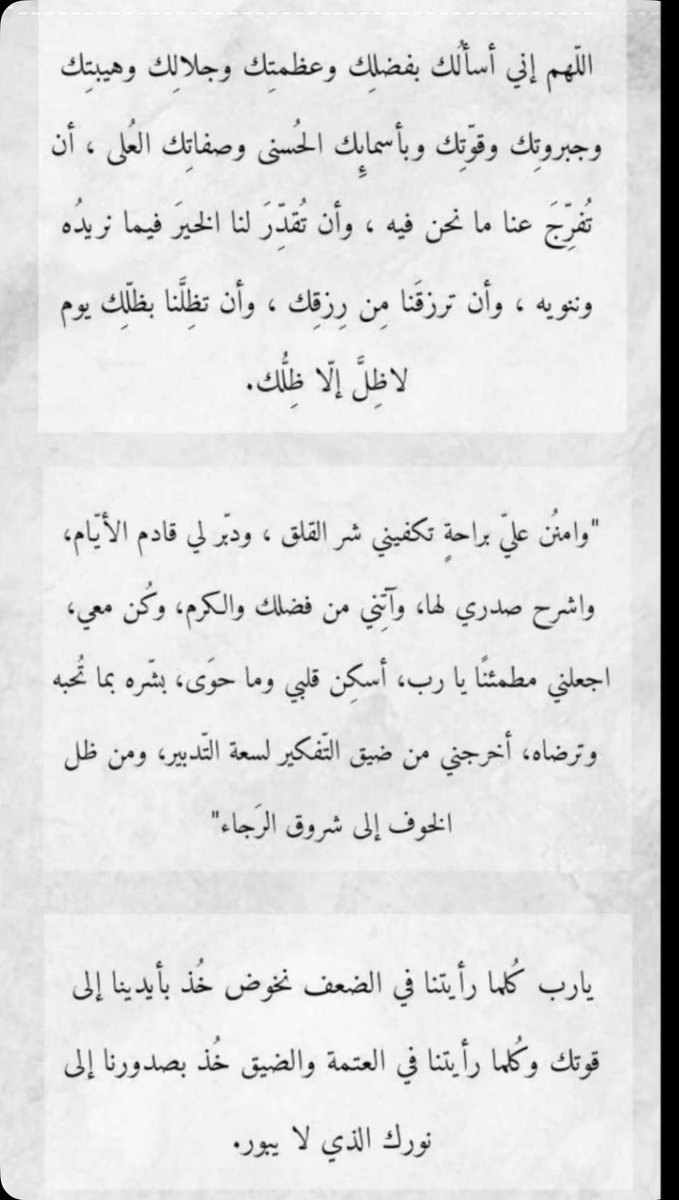 اللّهم إني أسألُك بفضلِك وعظمتِك وجلالِك وهيبتِك
وجبروتِك وقوّتِك وبأسمائِك الحُسنى وصفاتِك العُلى ، أن
تُفرِّجَ عنا ما نحن فيه ، وأن تُقدِّرَ لنا الخيرَ فيما نريدُه
وننويه ، وأن ترزقَنا مِن رِزقِك ، وأن تظِلَّنا بظلِّك يوم
لاظِلَّ إلّا ظِلُّك.
"وامنُن عليّ براحةٍ تكفيني شر القلق ، ودبّر لي قادم الأيّام،
واشرح صدري لها، وآتِني من فضلك والكرم، وكُن معي،
اجعلني مطمئنًا يا رب، أسكِن قلبي وما حوَى، بشّره بما تُحبه
وترضاه، أخرجني من ضيق التّفكير لسعة التّدبير، ومن ظل
الخوف إلى شروق الرَجاء"
يارب كُلما رأيتنا في الضعف نخوض خُذ بأيدينا إلى
قوتك وكُلما رأيتنا في العتمة والضيق خُذ بصدورنا إلى
نورك الذي لا يبور.